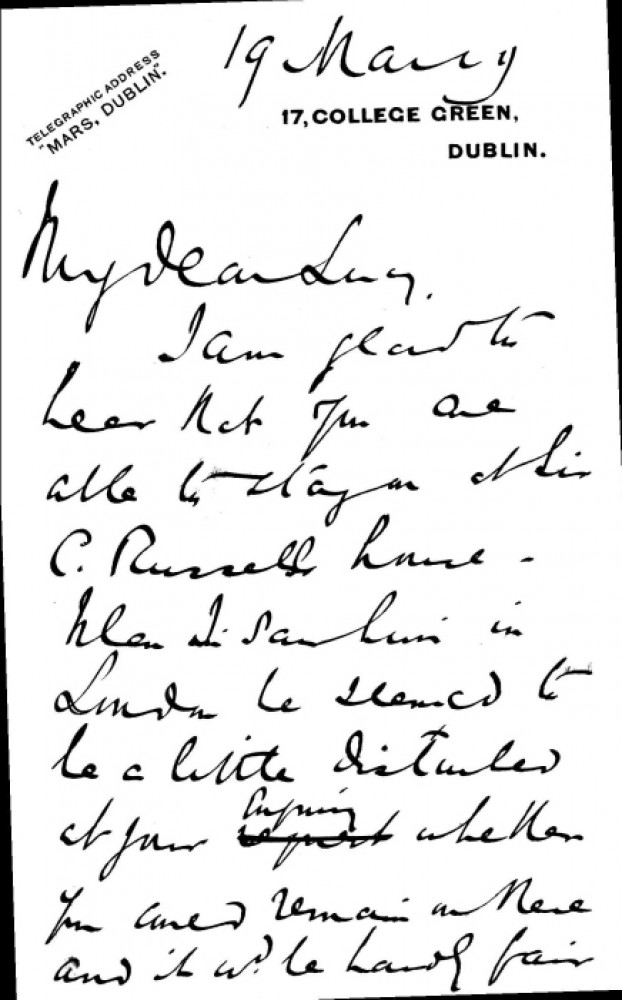 TELEGRAPHIC ADDRESS
"MARS, DUBLIN".
19
17, COLLEGE GREEN,
DUBLIN.
My dear Lucy,
I am glad to
hear that you are
able to stay on at Sir
C. Russells house -
When I saw him in
London he seemed to
be a little disturbed
enquiry
at your request whether
you could remain on there
and it wd. be hardly fair